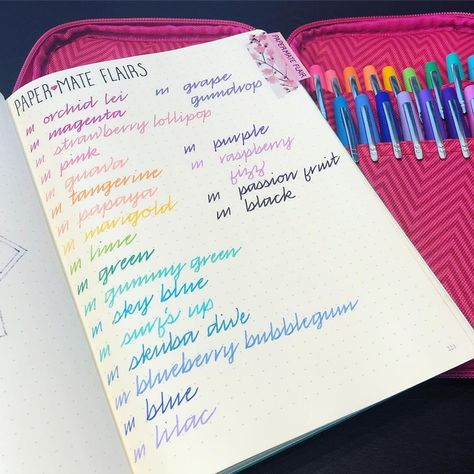 PAPER♥MATE FLAIRS
m orchid lei
m magenta
m strawberry lollipop
m pink
m guava
m tangerine
m papaya
m marigold
m lime
m green
m gummy green
m sky blue
m surf's up
m skuba dive
m blueberry bubblegum
m blue
m lilac
m grape
gumdrop
m purple
m raspberry
fizz
m passion fruit
m black
PAPERMATE FLAIR